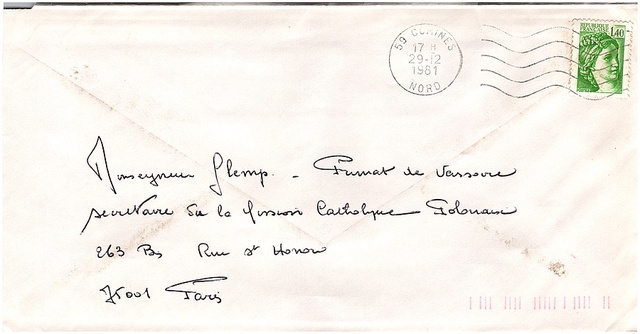 59 COMINES
17 H
29-12
1981
NORD
REPUBLIQUE FRANCAISE
1,40
Monseigneur Glemp. - Primat de Varsovie
secretaire de la Mission Catholique Polonaise
263 Bis Rue St Honoré
75001 Paris